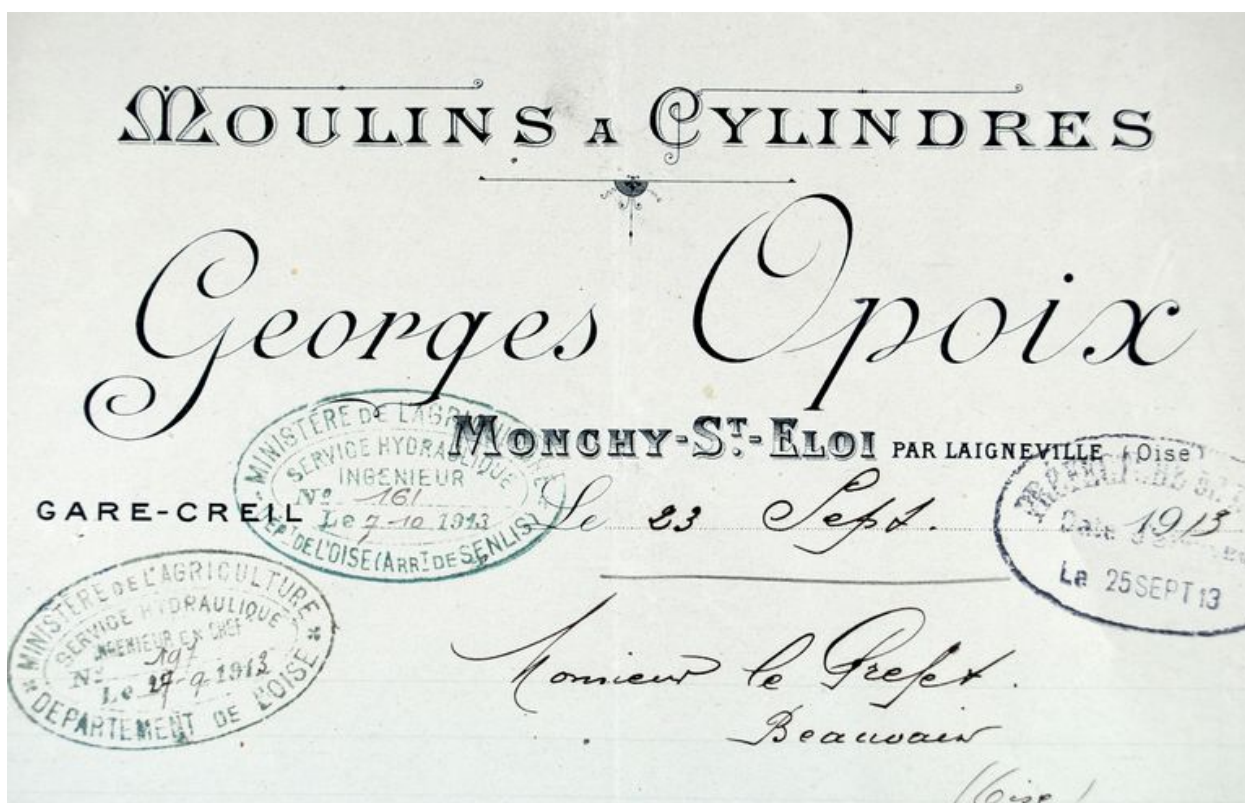 MOULINS A CYLINDRES
Georges Opoix
MONCHY-ST-ELOI PAR LAIGNEVILLE (Oise)
GARE-CREIL
Le 23 Sept. 1913
MINISTÈRE DE L'AGRICULTURE
SERVICE HYDRAULIQUE
INGENIEUR
No 161
Le 7-10 1913
DEPT DE L'OISE (ARRT DE SENLIS)
Date
Le 25 SEPT 13
MINISTÈRE DE L'AGRICULTURE
SERVICE HYDRAULIQUE
INGENIEUR EN CHEF
No 197
Le 27-9-1913
DEPARTEMENT DE L'OISE
Monsieur le Prefet.
Beauvais
(Oise)